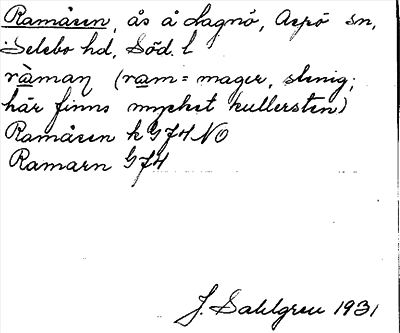 Ramåsen, ås å Lagnö, Aspö sn,
Selebo hd, Söd. l
ràmaṇ (ram = mager, stenig;
här finns mycket kullersten)
Ramåsen k G74 NO
Ramarn G74
J. Sahlgren 1931